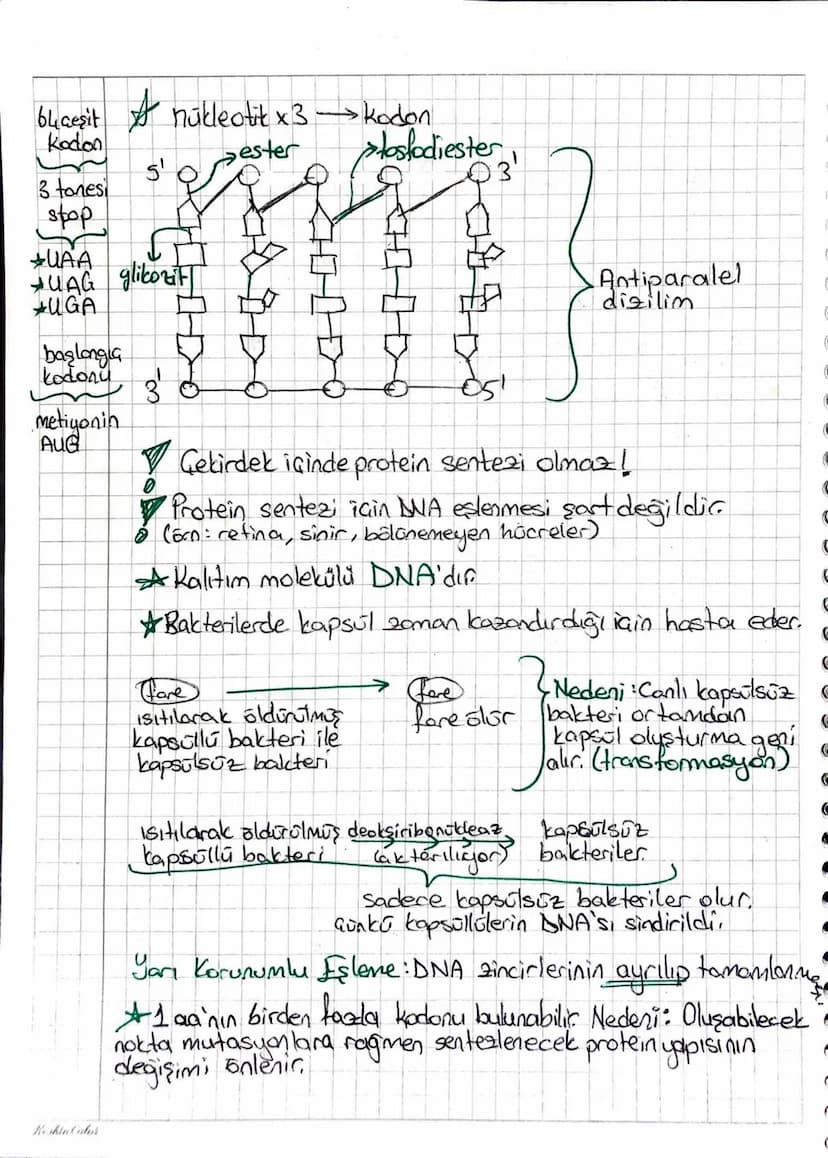 64 çeşit
kodon
3 tanesi
stop
★UAA
★UAG
★UGA
başlangıç
kodonu
metiyonin
AUG
☆ nükleotit x3 → kodon
ester
fosfodiester
5'
3'
glikozit
3'
5'
Antiparalel
dizilim
Çekirdek içinde protein sentezi olmaz!
Protein sentezi için DNA eşlenmesi şart değildir.
(örn: retina, sinir, bölünemeyen hücreler)
★Kalıtım molekülü DNA'dır.
★Bakterilerde kapsül zaman kazandırdığı için hasta eder.
fare
ısıtılarak öldürülmüş
kapsüllü bakteri ile
kapsülsüz bakteri
fare
fare ölür
Nedeni: Canlı kapsülsüz
bakteri ortamdan
kapsül oluşturma geni
alır. (transformasyon)
ısıtılarak öldürülmüş deoksiribonükleaz kapsülsüz
kapsüllü bakteri (aktarılıyor) bakteriler.
sadece kapsülsüz bakteriler olur.
Çünkü kapsüllülerin DNA'sı sindirildi.
Yarı Korunumlu Eşleme: DNA zincirlerinin ayrılıp tamamlanması
★1 aa'nın birden fazla kodonu bulunabilir. Nedeni: Oluşabilecek
nokta mutasyonlara rağmen sentezlenecek protein yapısının
değişimi önlenir.